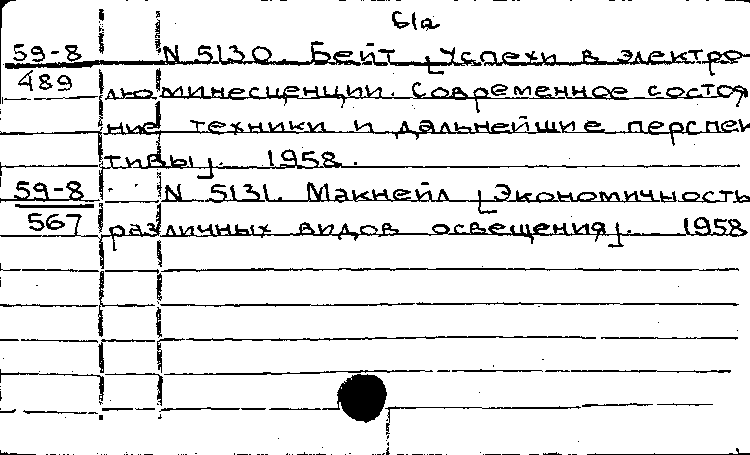 б/а
59-8 N 5130. Бейт [Успехи в электро-
489 люминесценции. Современное состоя
ние техники и дальнейшие перспек
тивы]. 1958.
59-8 N 5131. Макнейл [Экономичность
567 различных видов освещения]. 1958